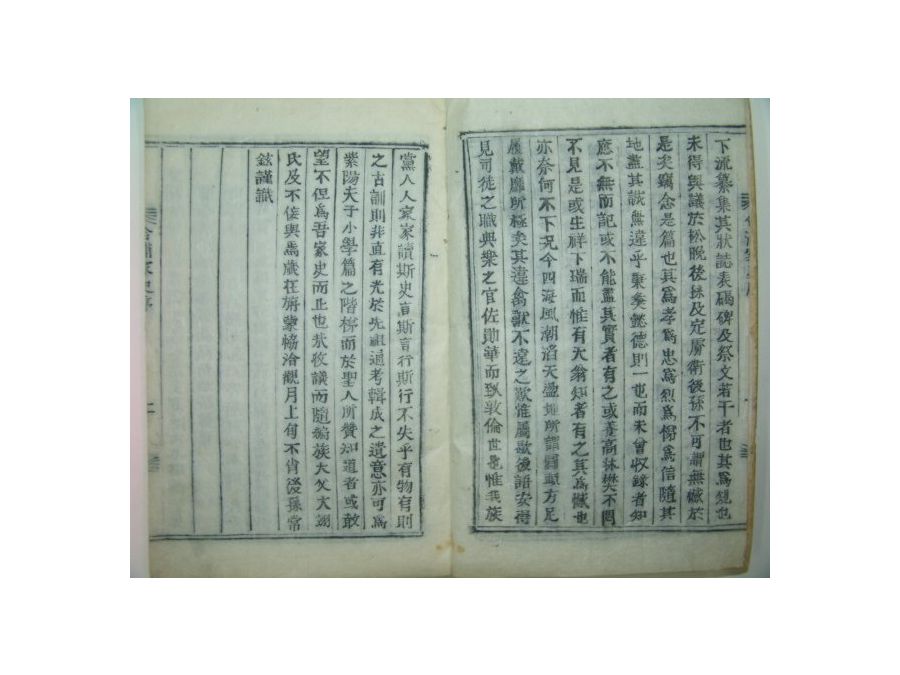 下流纂集其狀誌表碣碑及祭文若干者也其爲慈也
未得與議於松晚後孫及定
衛後孫不可謂無憾於
是矣竊念是篇也其爲孝爲忠爲烈爲惕爲信隨其
地盡其誠無違乎秉彝懿德則一也而未曾收錄者知
應不無而記或不能盡其實者有之或養高林樊不問
不見是或生祥下瑞而惟有天翁知者有之其爲憾也
亦奈何不下況今四海風潮滔天盪地所謂圓顱方足
履戴靡所極矣其違禽獸不遠之歎惟屬歇後語安得
見司徒之職典樂之官佐勛華而
敦倫世也惟我族
黨人人家家讀斯史言斯言行斯行不失乎有物有則
之古訓則非直有光於先祖遹考輯成之遺意亦可爲
紫陽夫子小學篇之階梯而於聖人所贊知道者或敢
望不但爲吾家史而止也哉收議而隨編族大父大翊
氏及不佞與焉歲在旃蒙協洽觀月上旬不肖後孫常
鉉謹識